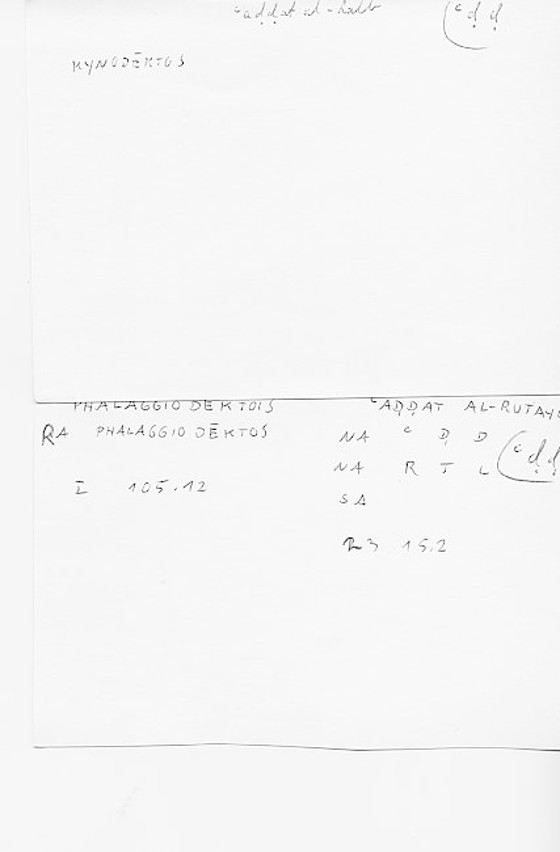 ʿaḍḍat al-kalb (ʿḍḍ
KYNODĒKTOS
PHALAGGIODĒKTOIS ʿAḌḌAT AL-RUTAY
RA PHALAGGIODĒKTOS
NA ʿ Ḍ Ḍ (ʿḍḍ
NA R T L
I 105.12
SA
R3 15.2